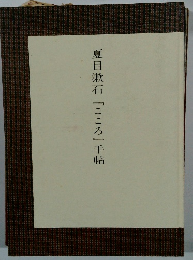 夏目漱石「こころ」手帖